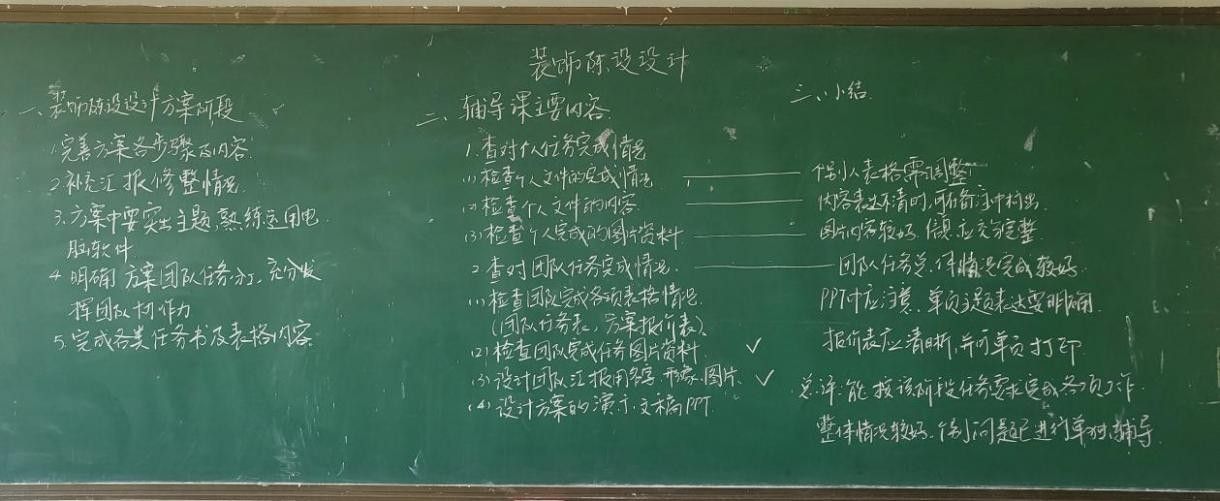 装饰陈设设计
一、装饰陈设设计方案阶段
1.完善方案各步骤及内容.
2.补充汇报,修整情况.
3.方案中要突出主题,熟练运用电
脑软件
4.明确方案团队任务分工,充分发
挥团队协作力
5.完成各类任务书及表格内容.
二、辅导课主要内容.
1.查对个人任务完成情况
(1)检查个人文件的完成情况
(2)检查个人文件的内容.
(3)检查个人完成的图片资料.
2.查对团队任务完成情况.
(1)检查团队完成各项表格情况.
(团队任务表,方案报价表).
(2)检查团队完成任务图片资料. ✓
(3)设计团队汇报用名字、形象、图片. ✓
(4)设计方案的演示文稿PPT.
三、小结.
个别人表格需调整
内容表达不清时,可在备注中标出.
图片内容较好,信息应交完整.
团队任务总体情况完成较好.
PPT中应注意,单页主题表达要明确.
报价表应清晰,并可单页打印
总评:能按该阶段任务要求完成各项工作
整体情况较好.个别问题已进行单独辅导.